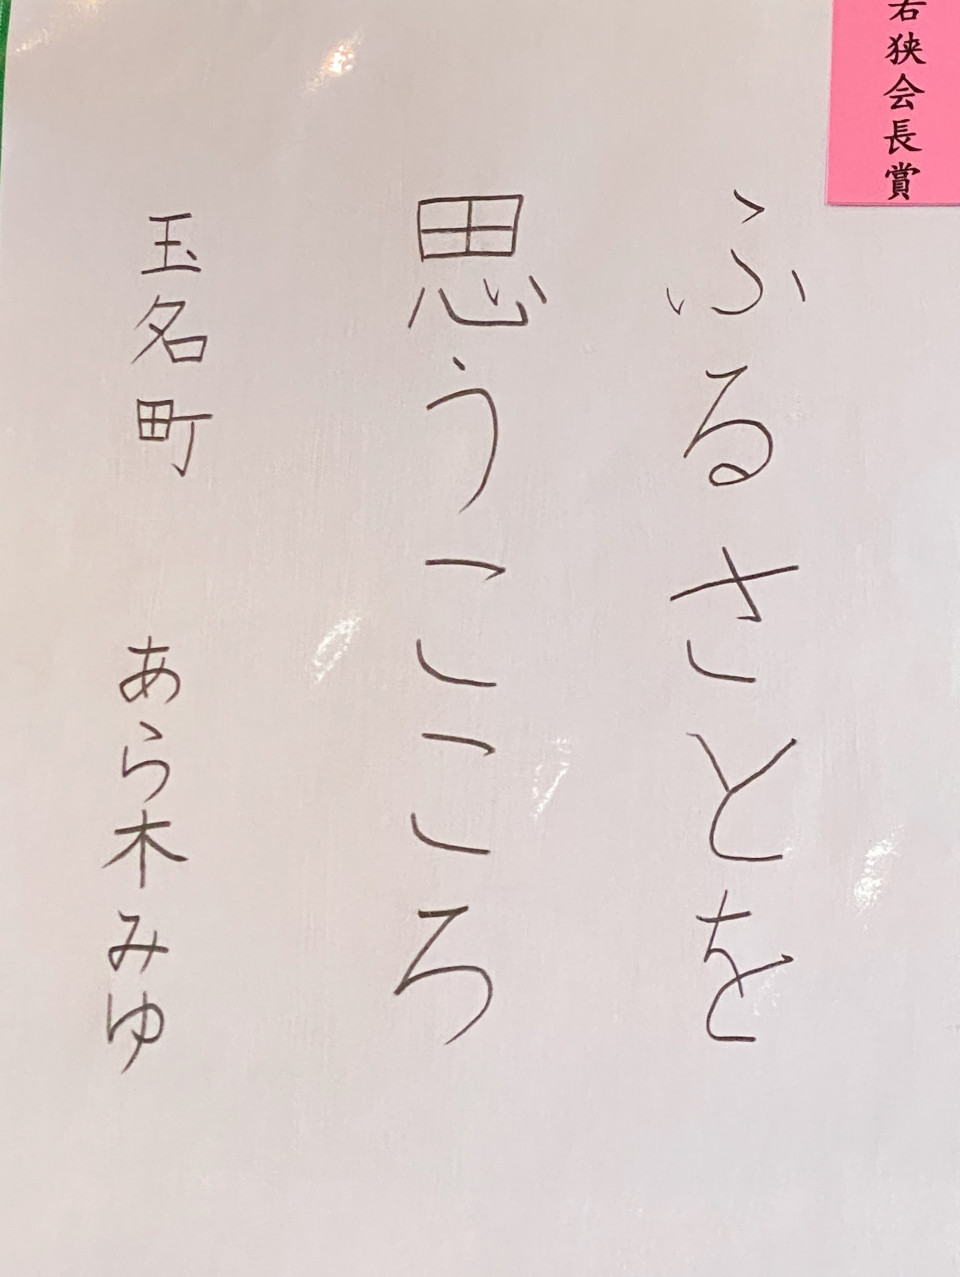 若狭会長賞
ふるさとを
思うこころ
玉名町 あら木みゆ